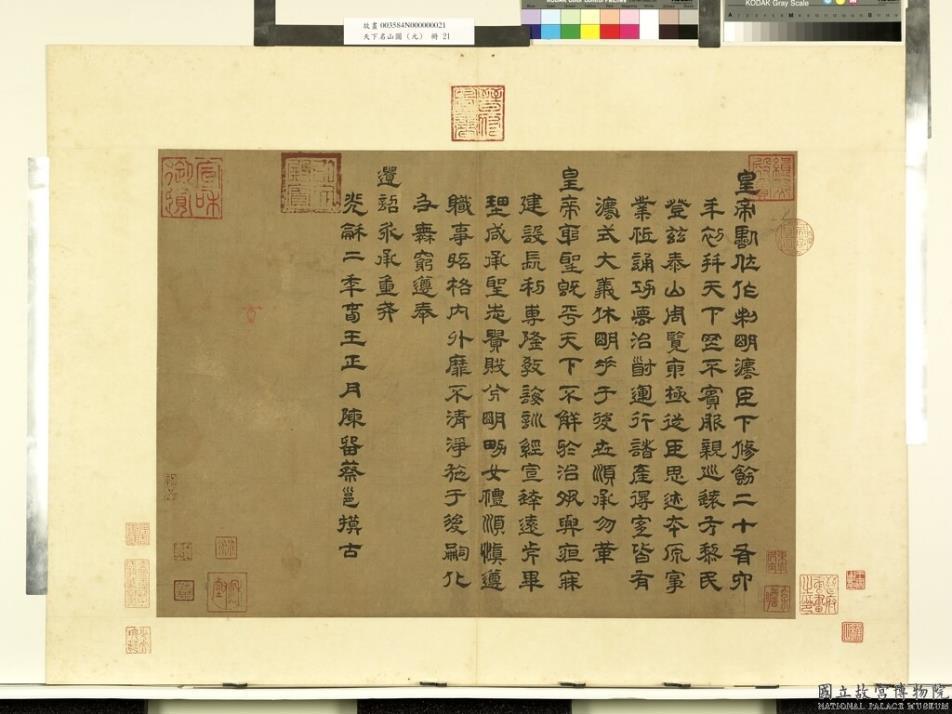 故畫 003584N000000021
天下名山圖(元) 冊 21
KODAK Color Control Patches
KODAK Gray Scale
皇帝臨位作制明灋臣下修飭二十有六
年初并天下罔不賓服親巡遠方黎民
登茲泰山周覽東極從臣思迹本原事
業祗誦功惪治道運行諸產得宜皆有
灋式大義休明垂于後世順承勿革
皇帝躬聖既平天下不解於治夙興夜寐
建設長利專隆教誨訓經宣達遠近畢
理咸承聖志貴賤分明男女禮順慎遵
職事昭格內外靡不清淨施于後嗣化
及無窮遵奉
遺詔永承重戒
光龢二年春王正月陳留蔡邕摸古
國立故宮博物院
NATIONAL PALACE MUSEUM